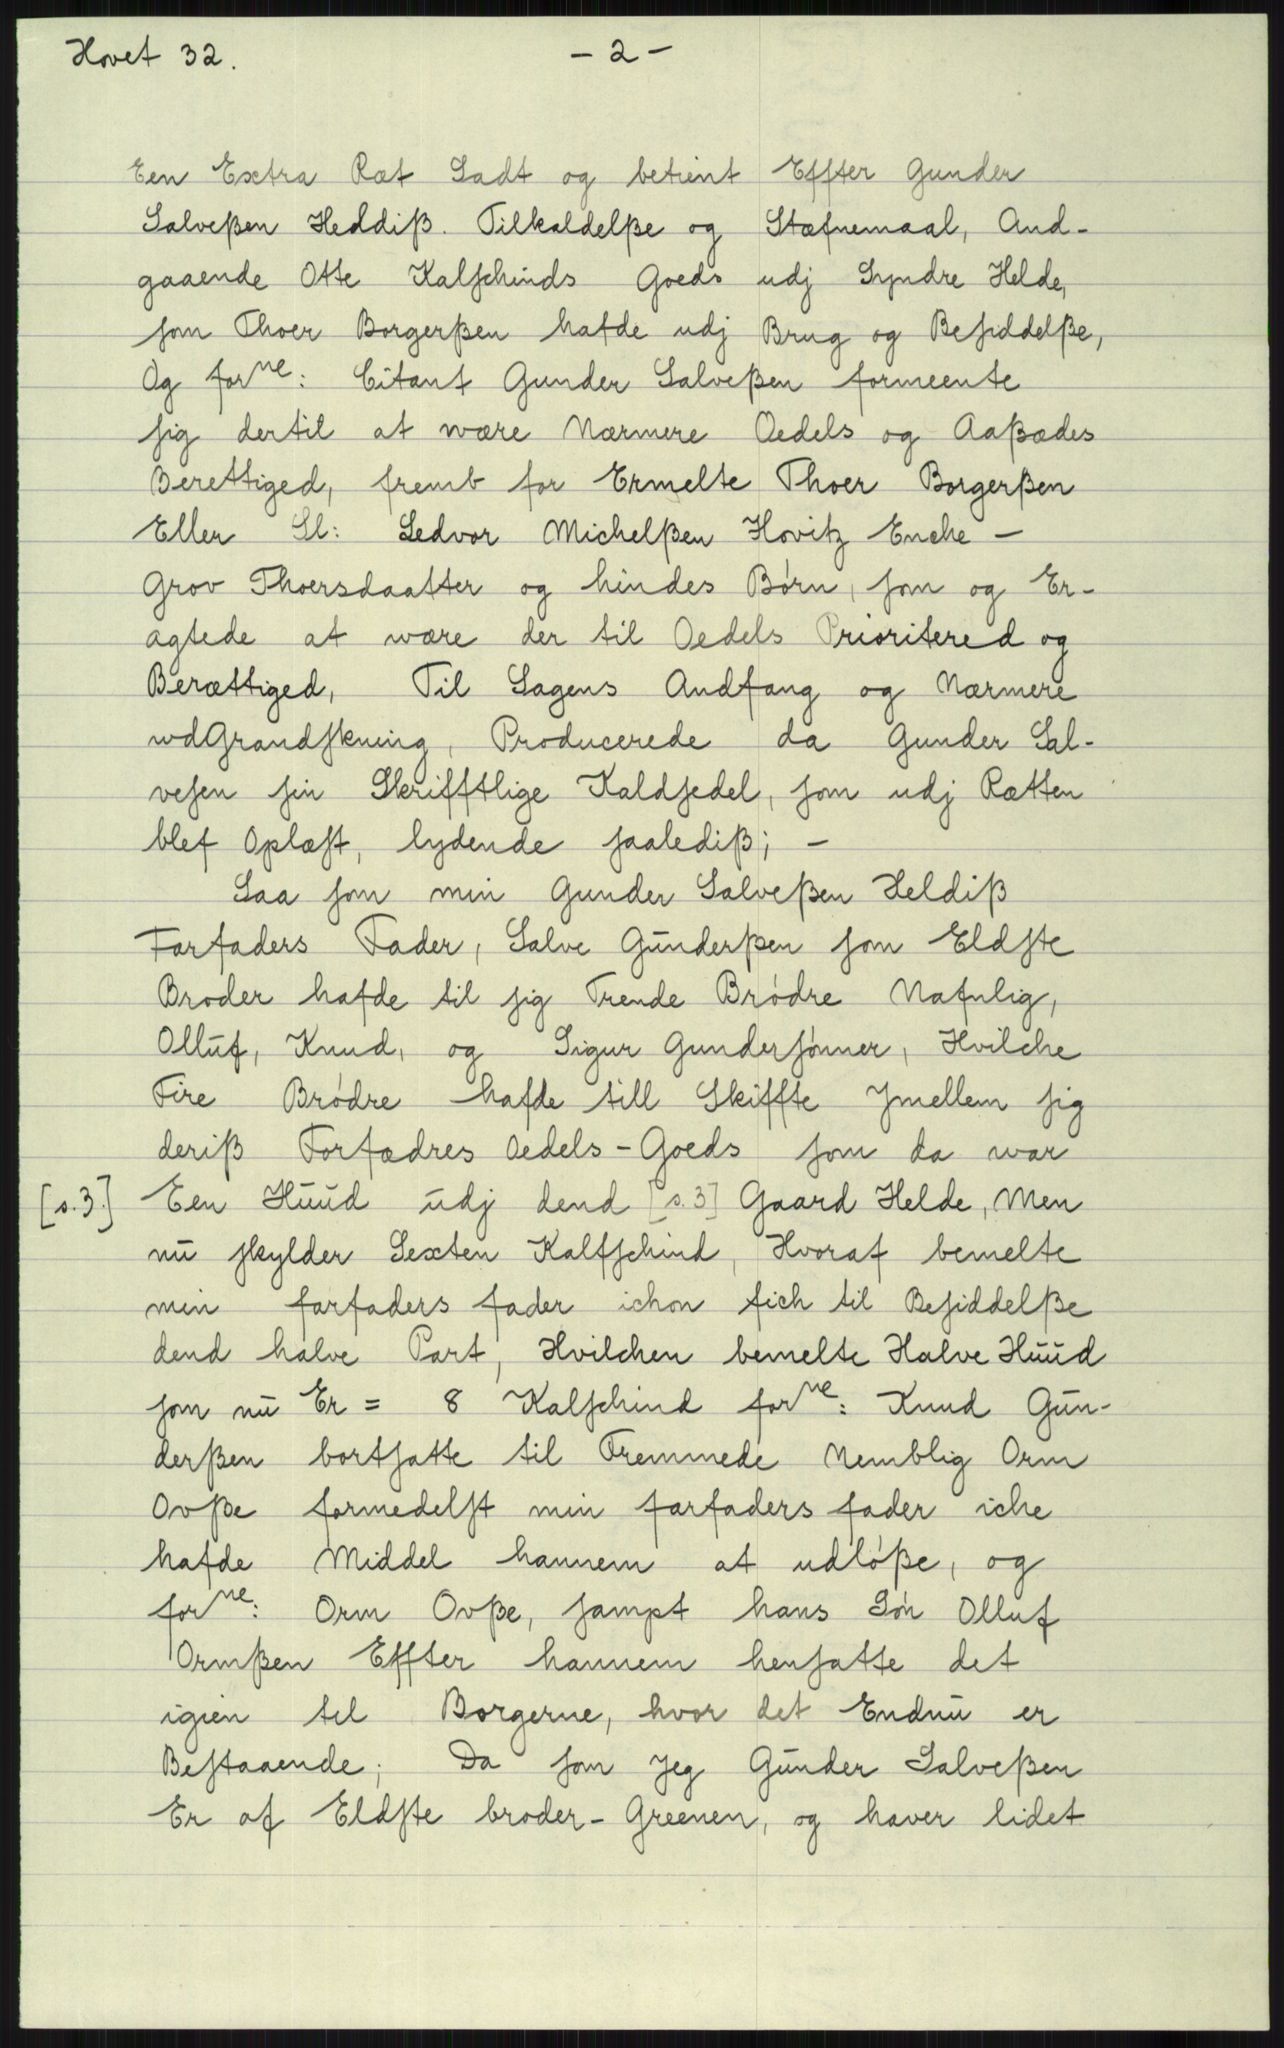 Hovet 32.
- 2 -
Een Extra Ret Sadt og betient Effter Gunder
Salveßen Heddiß. Tilkaldelße og Stæfnemaal, And-
gaaende Otte Kalfſchinds Goeds udj Syndre Helde,
ſom Thoer Borgerßen hafde udj Brug og Beſiddelße,
Og forne: Citant Gunder Salveßen formeente
ſig dertil at være Nærmere Oedels og Aaßædes
Berettiged, fremb for Ermelte Thoer Borgerßen
Eller Sl: Sedvor Michelßen Hovitz Enche -
Grov Thoersdaatter og hindes Børn, ſom og Er-
agtede at være der til Oedels Prioritered og
Berættiged, Til Sagens Andfang og Nærmere
udGrandſkning, Producerede da Gunder Sal-
veſen ſin Skrifftlige Kaldſedel, ſom udj Rætten
blef Oplæſt, lydende ſaalediß; -
Saa ſom min Gunder Salveßen Heldiß
Farfaders Fader, Salve Gŭnderßen ſom Eldſte
Broder hafde til ſig Trende Brødre Nafnlig,
Ollŭf, Knud, og Sigur Gunderſønner, Hvilche
Fire Brødre hafde till Skiffte Ymellem ſig
deriß Forfædres Oedels-Goeds ſom da war
[s.3.] Een Hŭŭd ŭdj dend [s.3] Gaard Helde, Men
nŭ ſkylder Sexten Kalfſchind, Hvoraf bemelte
min farfaders fader ichon fich til Beſiddelße
dend halve Part, Hvilchen bemelte Halve Hŭŭd
ſom nŭ Er = 8 Kalfſchind forne: Knud Gŭn-
derßen bortſatte til Fremmede Nemblig Orm
Ovße formedelſt min farfaders fader iche
hafde Middel hannem at udløße, og
forne: Orm Ovße, ſampt hans Søn Olluf
Ormßen Effter hannem henſatte det
igien til Borgerne, hvor det Endnŭ er
Beſtaaende; Da ſom Jeg Gŭnder Salveßen
Er af Eldſte broder-Greenen, og haver lidet